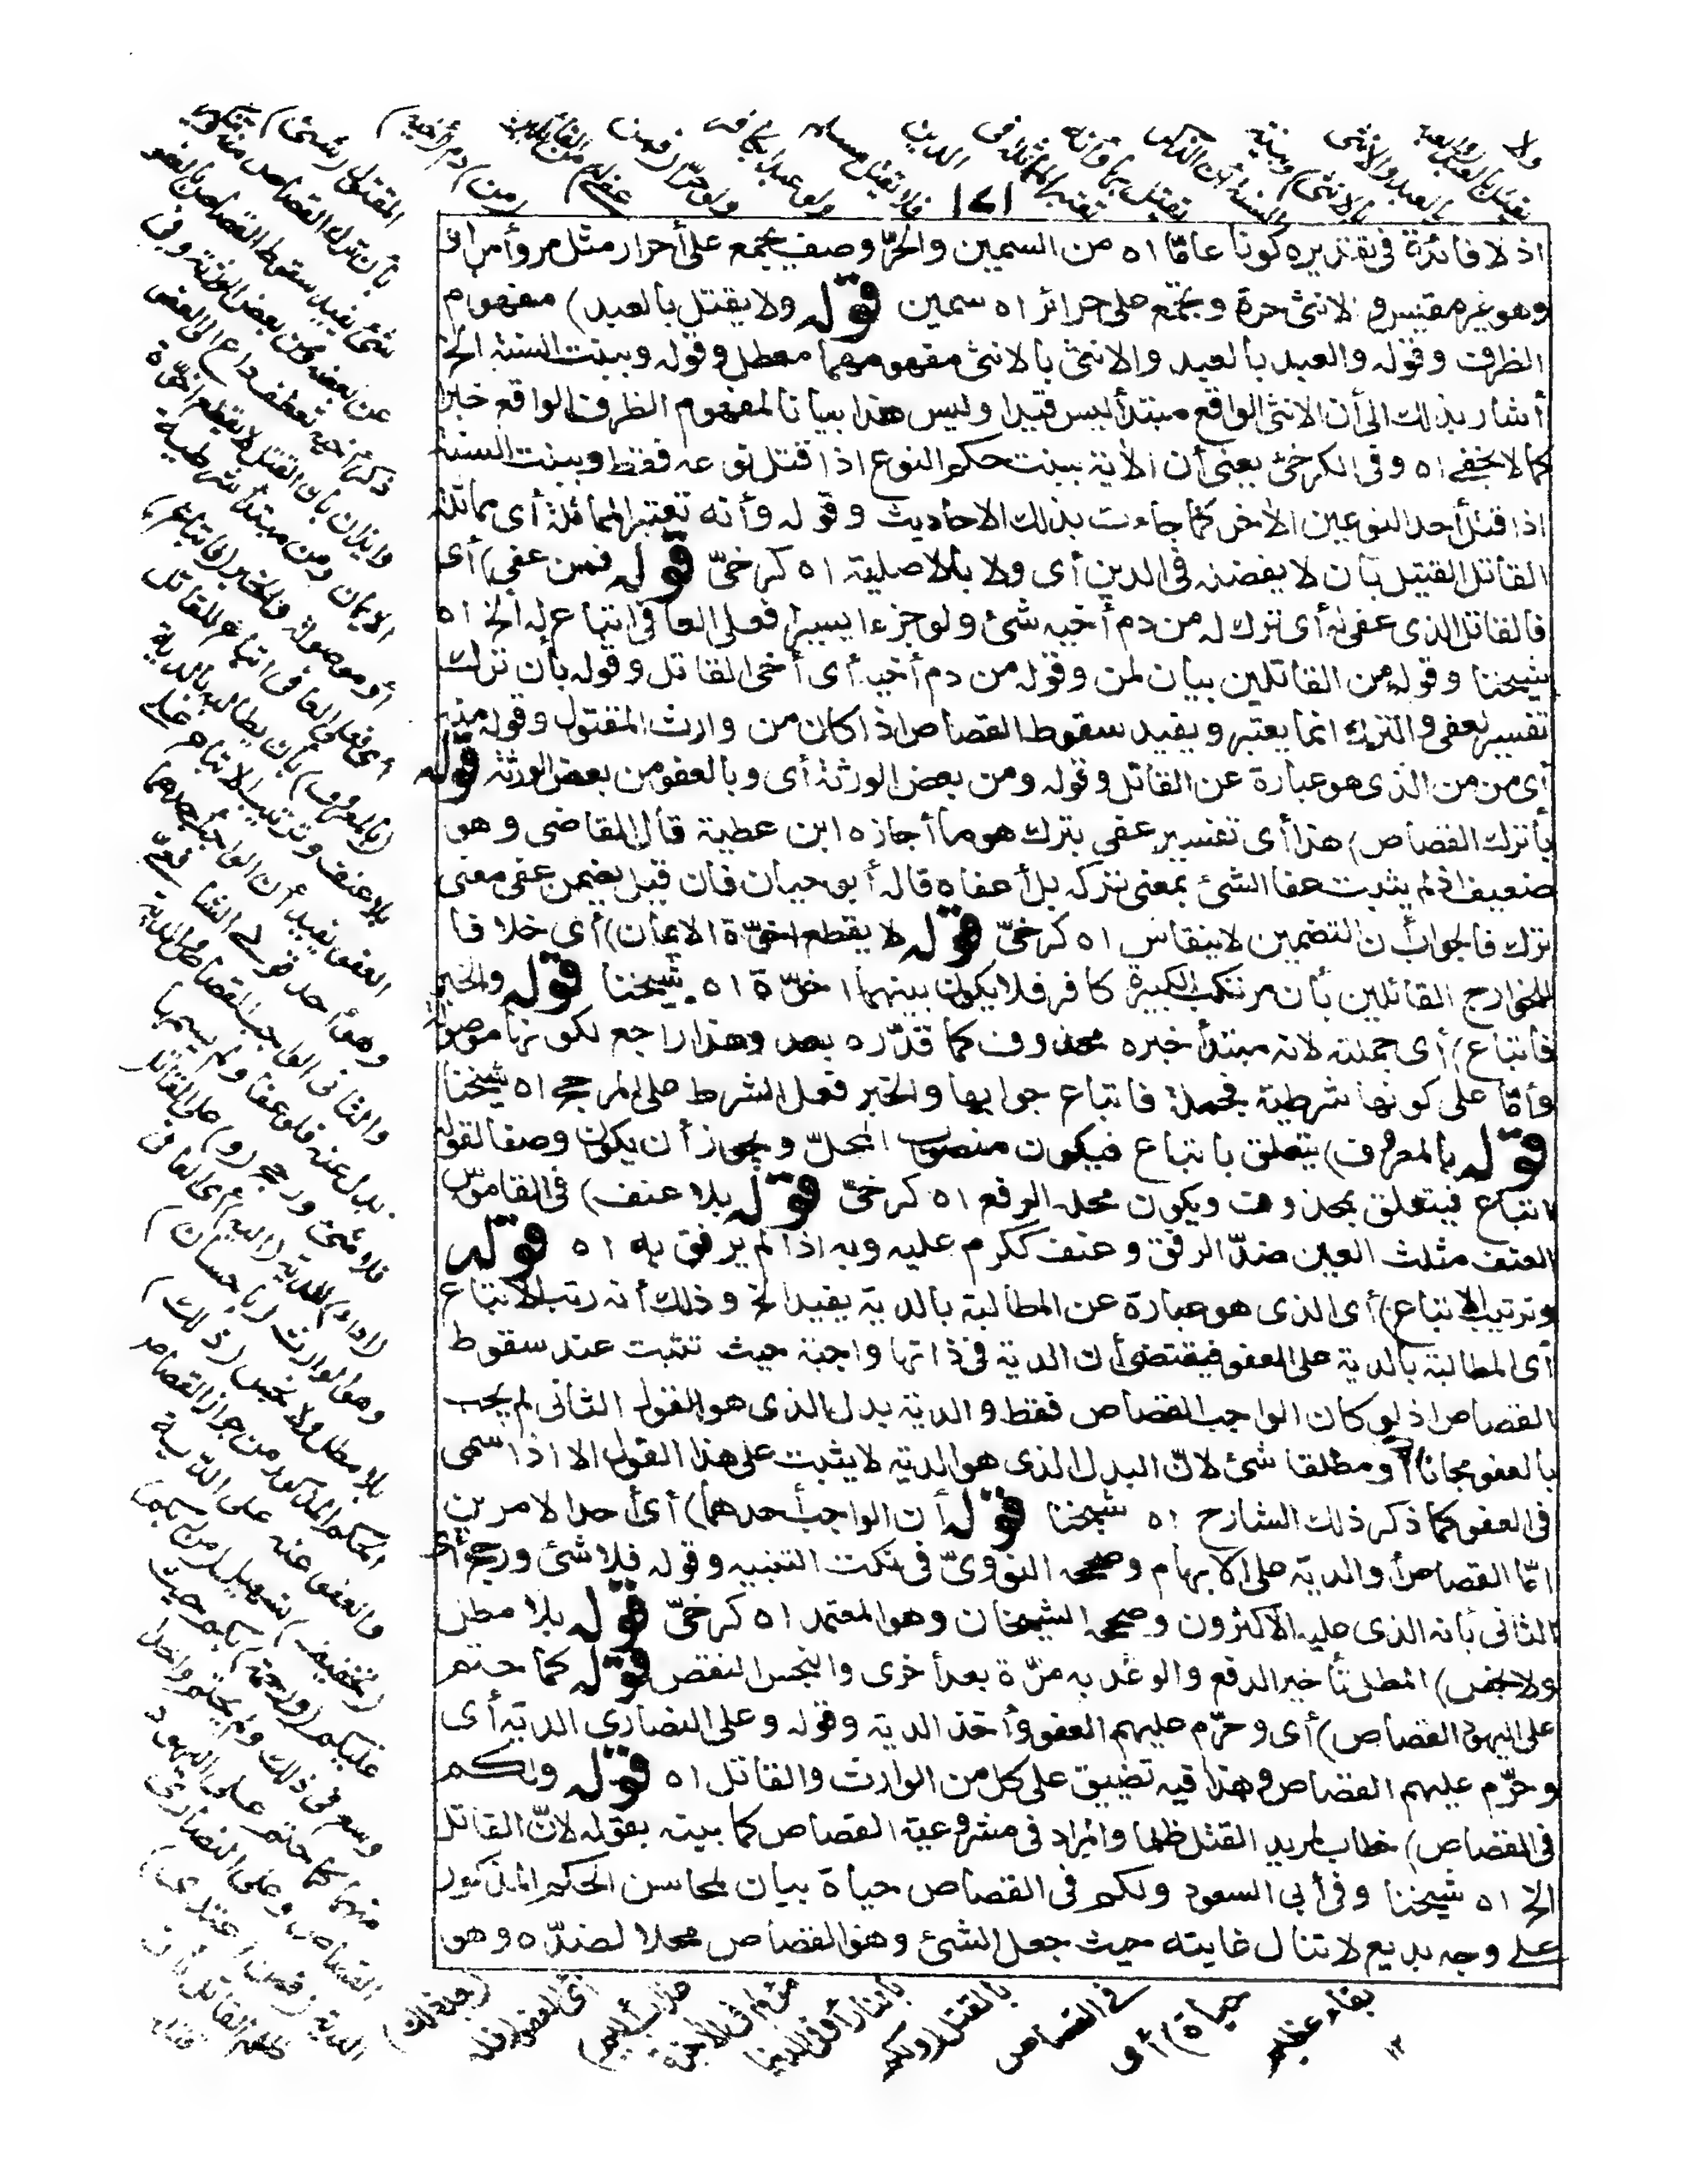 ١٤١
اذ لا فائدة فى تقديره كونا عامّا اه من السمين والحرّ وصف يجمع على أحرار مثل مر وأمرار
وهو غير مقيس والانثى حرة وتجمع على حرائر اه سمين قوله ولا يقتل بالعبد) مفهوم
الظرف وقوله والعبد بالعبد والانثى بالانثى مفهومهما معطل وقوله وبينت السنة الخ
أشار بذلك الى أن الانثى الواقع مبتدأ ليس قيدا وليس هذا بيانا لمفهوم الظرف الواقع خبرا
كما لا يخفى اه وفى الكرخى يعنى أن الاية بينت حكم النوع اذا قتل نوعه فقط وبينت السنة
اذا قتل أحد النوعين الاخر كما جاءت بذلك الاحاديث وقوله وأنه تعتبر المماثلة أى مماثلة
القاتل القتيل بأن لا يفضله فى الدين أى ولا بالاصلية اه كرخىّ قوله فمن عفى) أى
فالقاتل الذى عفى له أى ترك له من دم أخيه شئ ولو جزءا يسيرا فعلى العافى اتباع له الخ اه
شيخنا وقوله من القاتلين بيان لمن وقوله من دم أخيه أى أخى القاتل وقوله بأن ترك
تفسير لعفى والترك انما يعتبر ويفيد سقوط القصاص اذا كان من وارث المقتول وقوله منه
أى من من الذى هو عبارة عن القاتل وقوله ومن بعض الورثة أى وبالعفو من بعض الورثة قوله
بأن ترك القصاص) هذا أى تفسير عفى بترك هو ما أجازه ابن عطية قال القاضى وهو
ضعيف اذ لم يثبت عفا الشئ بمعنى تركه بل أعفاه قاله أبو حيان فان قيل يضمن عفى معنى
ترك فالجواب أن التضمين لا ينقاس اه كرخىّ قوله لا يقطع اخوّة الايمان) أى خلافا
للخوارج القائلين بأن مرتكب الكبيرة كافر فلا يكون بينهما اخوّة اه شيخنا قوله والخبر
فاتباع) أى جملته لانه مبتدأ خبره محذوف كما قدّره بعد وهذا راجع لكونها موصولة
وأمّا على كونها شرطية فجملة فاتباع جوابها والخبر فعل الشرط على المرجح اه شيخنا
قوله بالمعروف) يتعلق باتباع فيكون منصوب المحلّ ويجوز أن يكون وصفا لقوله
اتباع فيتعلق بمحذوف ويكون محله الرفع اه كرخىّ قوله بلا عنف) فى القاموس
العنف مثلث العين ضدّ الرفق وعنف ككرم عليه وبه اذا لم يرفق به اه قوله
وترتيب الاتباع) أى الذى هو عبارة عن المطالبة بالدية يفيد الخ وذلك أنه رتب الاتباع
أى المطالبة بالدية على العفو فيقتضى أن الدية فى ذاتها واجبة حيث تثبت عند سقوط
القصاص اذ لو كان الواجب القصاص فقط والدية بدل الذى هو القول الثانى لم يجب
بالعفو مجانا أو مطلقا شئ لانّ البدل الذى هو الدية لا يثبت على هذا القول الا اذا سمى
فى العفو كما ذكر ذلك الشارح اه شيخنا قوله أن الواجب أحدهما) أى أحد الامرين
امّا القصاص أو الدية على الابهام وصححه النووىّ فى نكت التنبيه وقوله فلا شئ ورجح أى
الثانى بأنه الذى عليه الاكثرون وصححه الشيخان وهو المعتمد اه كرخىّ قوله بلا مطل
ولا بخس) المطل تأخير الدفع والوعد به مرّة بعد أخرى والبخس النقص قوله كما حتم
على اليهود القصاص) أى وحرّم عليهم العفو وأخذ الدية وقوله وعلى النصارى الدية أى
وحرّم عليهم القصاص وهذا فيه تضييق على كل من الوارث والقاتل اه قوله ولكم
فى القصاص) خطاب لمريد القتل ظلما والمراد فى مشروعية القصاص كما بينه بقوله لانّ القاتل
الخ اه شيخنا وفى أبى السعود ولكم فى القصاص حياة بيان لمحاسن الحكم المذكور
على وجه بديع لا تنال غايته حيث جعل الشئ وهو القصاص محلا لضدّه وهو
المقتول (شئ)
بأن ترك القصاص منه
شئ يفيد سقوط القصاص بالعفو
عن بعضه ومن بعض الورثة وفى
ذكر أخيه تعطف داع الى العفو
وايذان بأن القتل لا يقطع اخوّة
الايمان ومن مبتدأ شرطية
أو موصولة والخبر (فاتباع)
أى فعلى العافى اتباع للقاتل
(بالمعروف) بأن يطالبه بالدية
بلا عنف وترتيب الاتباع على
العفو يفيد أن الواجب أحدهما
وهو أحد قولى الشافعىّ
والثانى الواجب القصاص والدية
بدل عنه فلو عفا ولم يسمها
فلا شئ ورجح (و) على القاتل
(اداء) للدية (اليه) أى العافى
وهو الوارث (باحسان)
بلا مطل ولا بخس (ذلك)
الحكم المذكور من جواز القصاص
والعفو عنه على الدية
(تخفيف) تسهيل (من ربكم)
عليكم (ورحمة) بكم حيث
وسع فى ذلك ولم يحتم واحدا
منهما كما حتم على اليهود
القصاص وعلى النصارى
الدية (فمن اعتدى)
ظلم القاتل بأن
قتله
(بعد ذلك)
أى العفو (فله
عذاب أليم)
مؤلم فى الآخرة
بالنار أو فى الدنيا
بالقتل (ولكم
فى القصاص
حياة) أى
بقاء عظيم
١٢